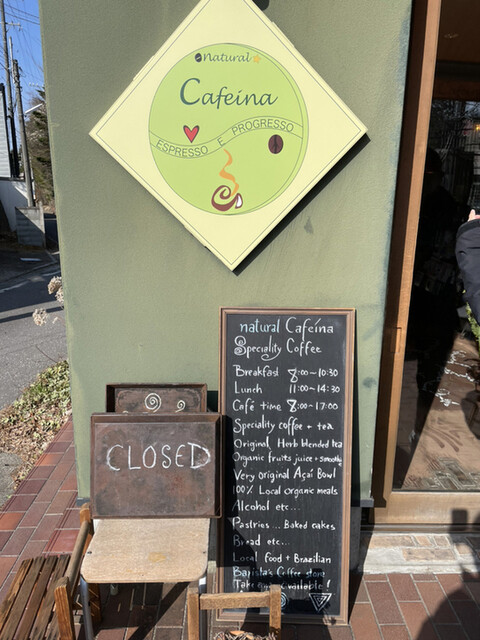 natural
Cafeína
ESPRESSO E PROGRESSO
natural Cafeína
Speciality Coffee
Breakfast 8:00~10:30
Lunch 11:00~14:30
Café time 8:00~17:00
Speciality coffee + tea
Original Herb blended tea
Organic fruits juice + smoothy
Very original Açaí Bowl
100% Local organic meals
Alcohol etc...
Pastries... Baked cakes
Bread etc...
Local food + Brazilian
Barista's Coffee
Take available!
CLOSED